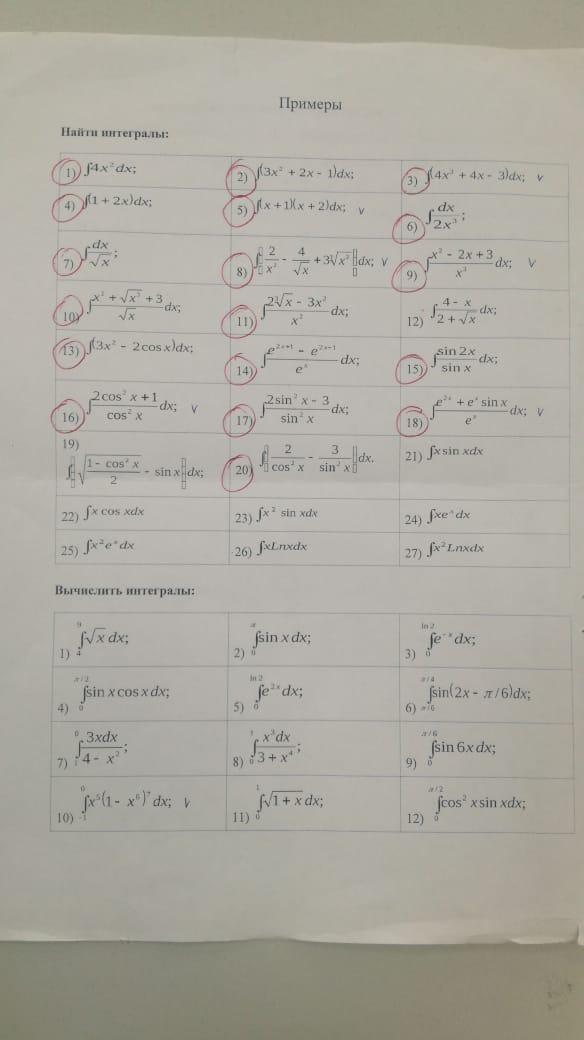 Примеры
Найти интегралы:
1) ∫4x²dx; 2) ∫(3x² + 2x - 1)dx; 3) ∫(4x³ + 4x - 3)dx; v
4) ∫(1 + 2x)dx; 5) ∫(x + 1)(x + 2)dx; v 6) ∫dx/2x³;
7) ∫dx/√x; 8) ∫[2/x² - 4/√x + 3∛x²]dx; v 9) ∫(x² - 2x + 3)/x³ dx; v
10) ∫(x² + √x³ + 3)/√x dx; 11) ∫(2∛x - 3x²)/x² dx; 12) ∫(4 - x)/(2 + √x) dx;
13) ∫(3x² - 2cosx)dx; 14) ∫(e²ˣ⁺¹ - e²ˣ⁺¹)/eˣ dx; 15) ∫sin 2x/sin x dx;
16) ∫(2cos² x + 1)/cos² x dx; v 17) ∫(2sin² x - 3)/sin² x dx; 18) ∫(e²ˣ + eˣ sin x)/eˣ dx; v
19) ∫[√((1 - cos² x)/2) - sin x]dx; 20) ∫[2/cos² x - 3/sin² x]dx. 21) ∫x sin xdx
22) ∫x cos xdx 23) ∫x² sin xdx 24) ∫xeˣdx
25) ∫x²eˣdx 26) ∫xLnxdx 27) ∫x²Lnxdx
Вычислить интегралы:
1) ∫₄⁹ √x dx; 2) ∫₀^π sin x dx; 3) ∫₀^ln2 e⁻ˣ dx;
4) ∫₀^π/2 sin x cos x dx; 5) ∫₀^ln2 e²ˣ dx; 6) ∫_π/6^π/4 sin(2x - π/6)dx;
7) ∫₁⁰ 3xdx/(4 - x²); 8) ∫₀¹ x³dx/(3 + x⁴); 9) ∫₀^π/6 sin 6x dx;
10) ∫₋₁⁰ x⁵(1 - x⁶)⁷ dx; v 11) ∫₀¹ √(1 + x) dx; 12) ∫₀^π/2 cos² x sin xdx;